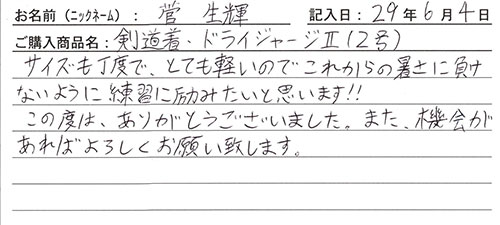 お名前（ニックネーム）： 菅 生輝 記入日：29年6月4日
ご購入商品名：剣道着・ドライジャージⅡ(2号)
サイズも丁度で、とても軽いのでこれからの暑さに負け
ないように練習に励みたいと思います!!
この度は、ありがとうございました。また、機会が
あればよろしくお願い致します。